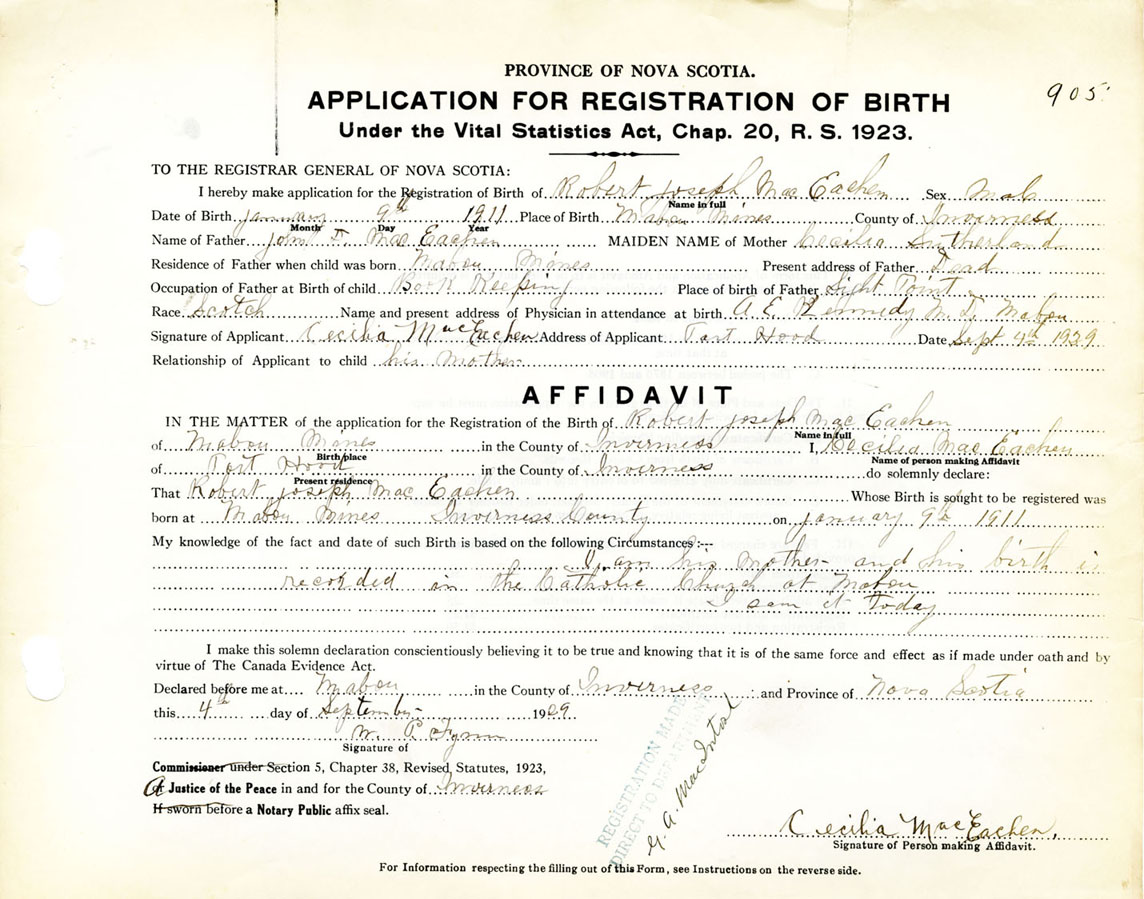 PROVINCE OF NOVA SCOTIA.
905
APPLICATION FOR REGISTRATION OF BIRTH
Under the Vital Statistics Act, Chap. 20, R. S. 1923.
TO THE REGISTRAR GENERAL OF NOVA SCOTIA:
I hereby make application for the Registration of Birth of Robert Joseph Mac Eachen Sex Male
Name in full
Date of Birth January 9th 1911 Place of Birth Mabou Mines County of Inverness
Month Day Year
Name of Father John F. Mac Eachen MAIDEN NAME of Mother Cecilia Sutherland
Residence of Father when child was born Mabou Mines Present address of Father Dead
Occupation of Father at Birth of child Book Keeping Place of birth of Father Sight Point
Race Scotch Name and present address of Physician in attendance at birth A E Kennedy M D, Mabou
Signature of Applicant Cecilia MacEachen Address of Applicant Port Hood Date Sept 4th 1929
Relationship of Applicant to child his Mother
AFFIDAVIT
IN THE MATTER of the application for the Registration of the Birth of Robert Joseph Mac Eachen
Name in full
of Mabou Mines in the County of Inverness I, Cecilia Mac Eachen
Birthplace Name of person making Affidavit
of Port Hood in the County of Inverness do solemnly declare:
Present residence
That Robert Joseph Mac Eachen Whose Birth is sought to be registered was
born at Mabou Mines Inverness County on January 9th 1911
My knowledge of the fact and date of such Birth is based on the following Circumstances:--
I am his Mother and his birth is
recorded in the Catholic Church at Mabou
I saw it Today
I make this solemn declaration conscientiously believing it to be true and knowing that it is of the same force and effect as if made under oath and by
virtue of The Canada Evidence Act.
Declared before me at Mabou in the County of Inverness and Province of Nova Scotia
this 4th day of September 1929
W. P. Flynn
Signature of
Commissioner under Section 5, Chapter 38, Revised Statutes, 1923,
A Justice of the Peace in and for the County of Inverness
If sworn before a Notary Public affix seal.
REGISTRATION MADE
DIRECT TO DEPARTMENT
G. A. MacIntosh
Cecilia MacEachen
Signature of Person making Affidavit.
For Information respecting the filling out of this Form, see Instructions on the reverse side.